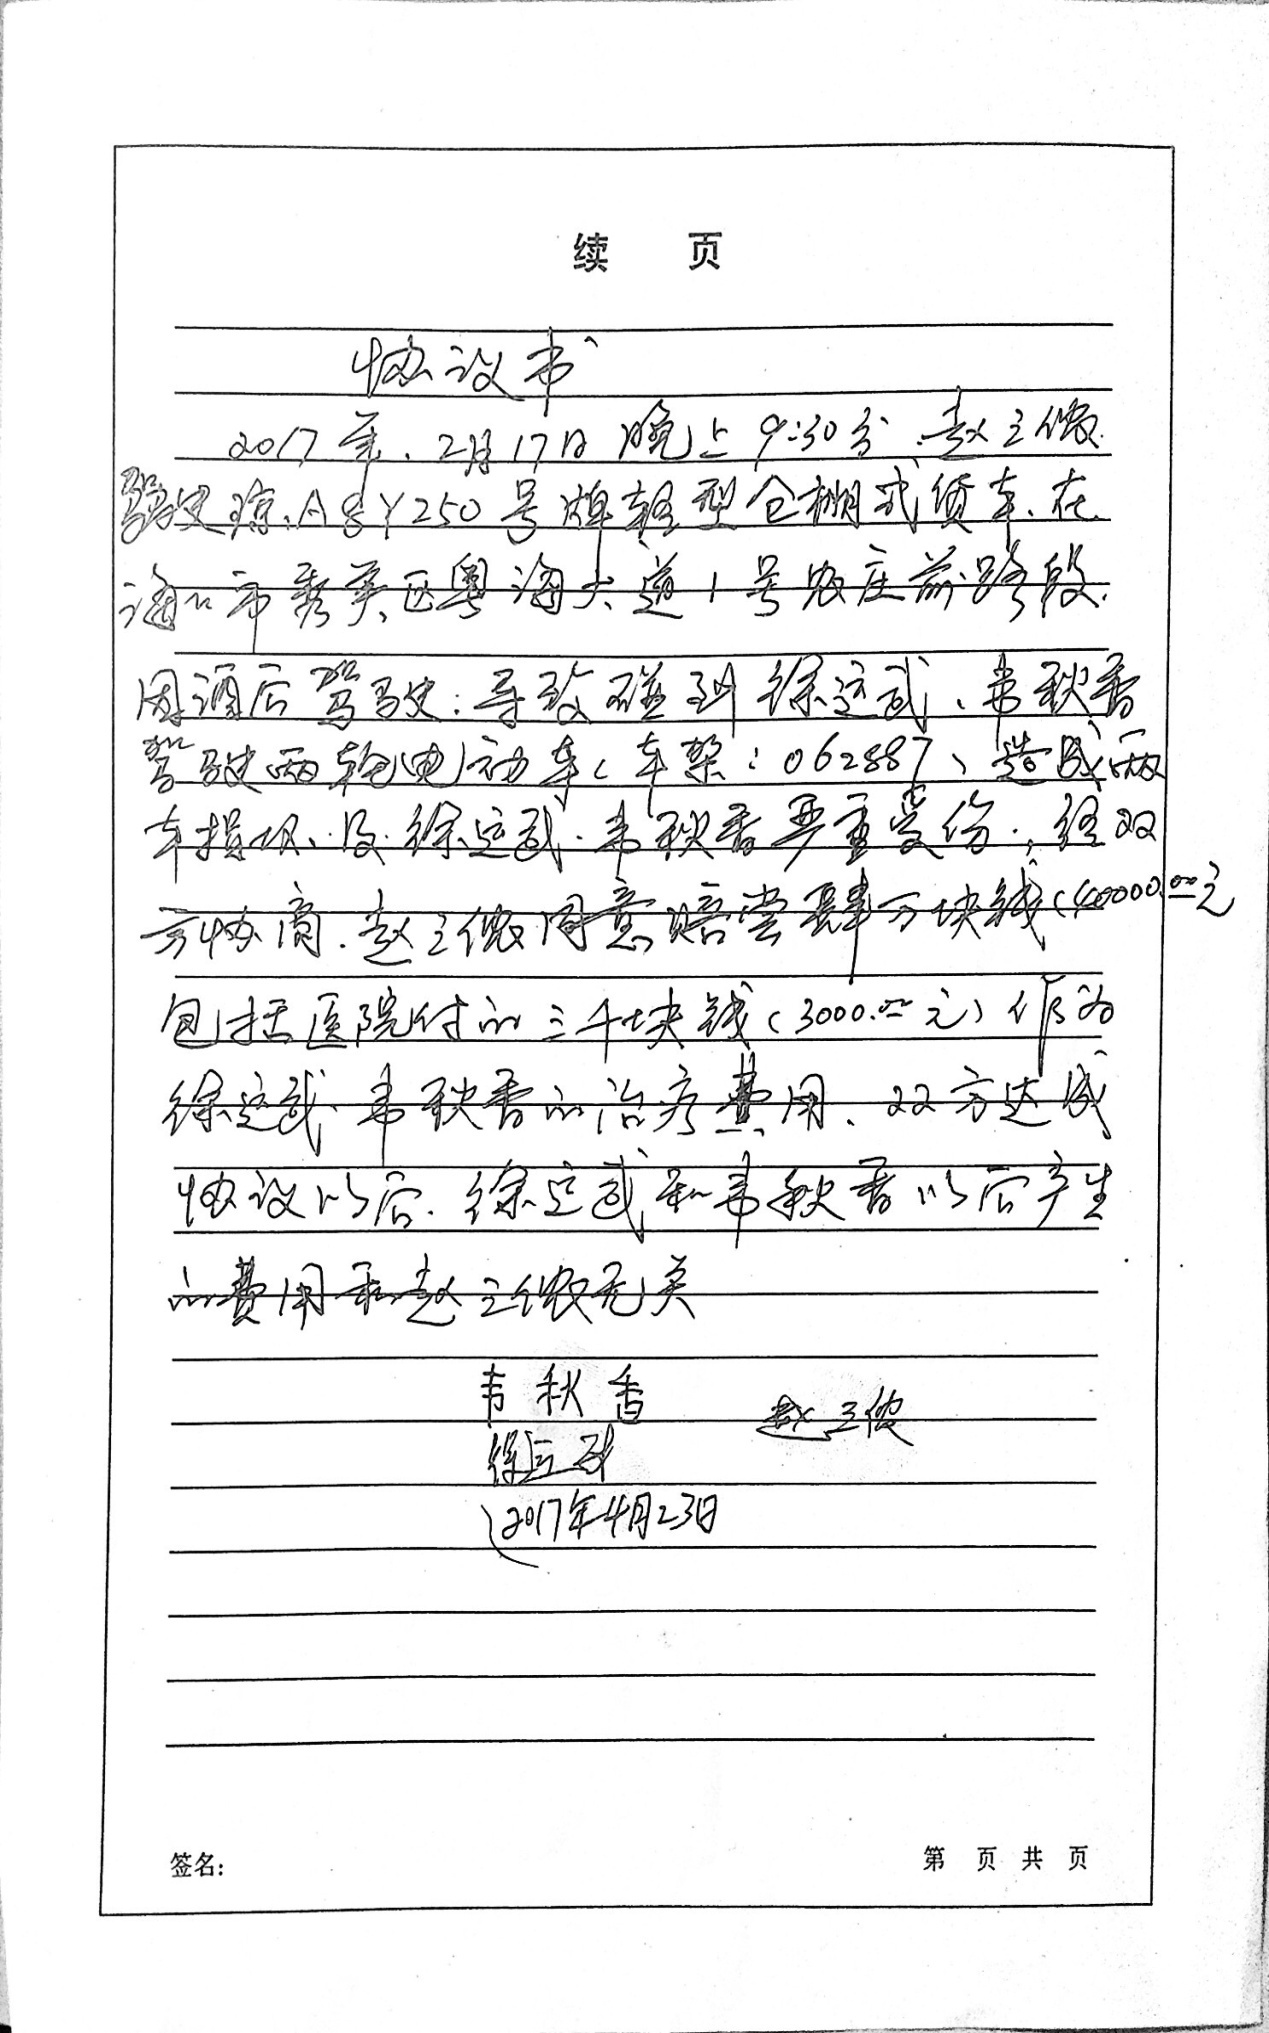 续 页
协议书
2017年.2月17日晚上9:30分.赵立侬.
驾驶琼.A8Y250号牌轻型仓棚式货车.在
海口市秀英区粤海大道1号农庄前路段.
因酒后驾驶:导致碰到徐定武、韦秋香
驾驶两轮电动车(车架:062887)造成两
车损坏.及.徐定武.韦秋香严重受伤.;经双
方协商.赵立侬同意赔尝肆万块钱(40000.00元
包括医院付的三千块钱(3000.00元)作为
徐定武.韦秋香的治疗费用.双方达成
协议以后.徐定武和韦秋香以后产生
的费用和赵立侬无关
韦秋香 赵立侬
徐定武
2017年4月23日
签名: 第 页 共 页